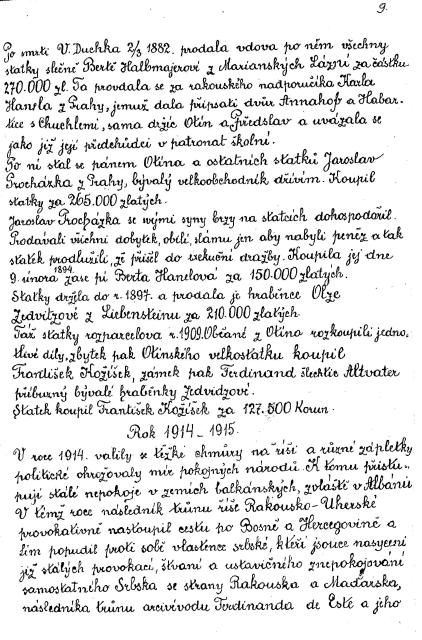 9.
Po smrti V. Duchka 2/3 1882. prodala vdova po něm všechny
statky slečně Bertě Halbmajerové z Marianských Lázní za částku
270.000 zl. Ta provdala se za rakouského nadporučíka Karla
Hanela z Prahy, jemuž dala připsati dvůr Annahof a Habar-
tice s Chuchlemi, sama držíc Otín a Předslav a uvázala se
jako již její předchůdci v patronat školní.
Po ní stal se pánem Otína a ostatních statků Jaroslav
Procházka z Prahy, bývalý velkoobchodník dřívím. Koupil
statky za 265.000 zlatých.
Jaroslav Procházka se svými syny brzy na statcích dohospodařil.
Prodávali všichni dobytek, obilí, slámu jen aby nabyli peněz a tak
statek prodlužili, že přišel do exekuční dražby. Koupila jej dne
9. února 1894 zase pí Berta Hanelová za 150.000 zlatých.
Statky držela do r. 1897. a prodala je hraběnce Olze
Zedvitzové z Liebensteinu za 210.000 zlatých
Táž statky rozparcelova r. 1909. Občané z Otína rozkoupili jedno-
tlivé díly, zbytek pak Otínského velkostatku koupil
František Kožíšek, zámek pak Ferdinand šlechtic Altvater
příbuzný bývalé hraběnky Zedvidzové.
Statek koupil František Kožíšek za 127.500 Korun.
Rok 1914-1915.
V roce 1914. valily se těžké chmúry na říši a různé zápletky
politické ohrožovaly mír pokojných národů. K tomu přistu-
pují stálé nepokoje v zemích balkánských, zvláště v Albánii
V témž roce následník trůnu říše Rakousko-Uherské
provokativně nastoupil cestu po Bosně a Hercegovině a
tím popudil proti sobě vlastence srbské, kteří jsouce nasyceni
již stálých provokací, štvaní a ustavičného znepokojování
samostatného Srbska se strany Rakouska a Maďarska,
následníka trůnu arcivévodu Ferdinanda de Esté a jeho